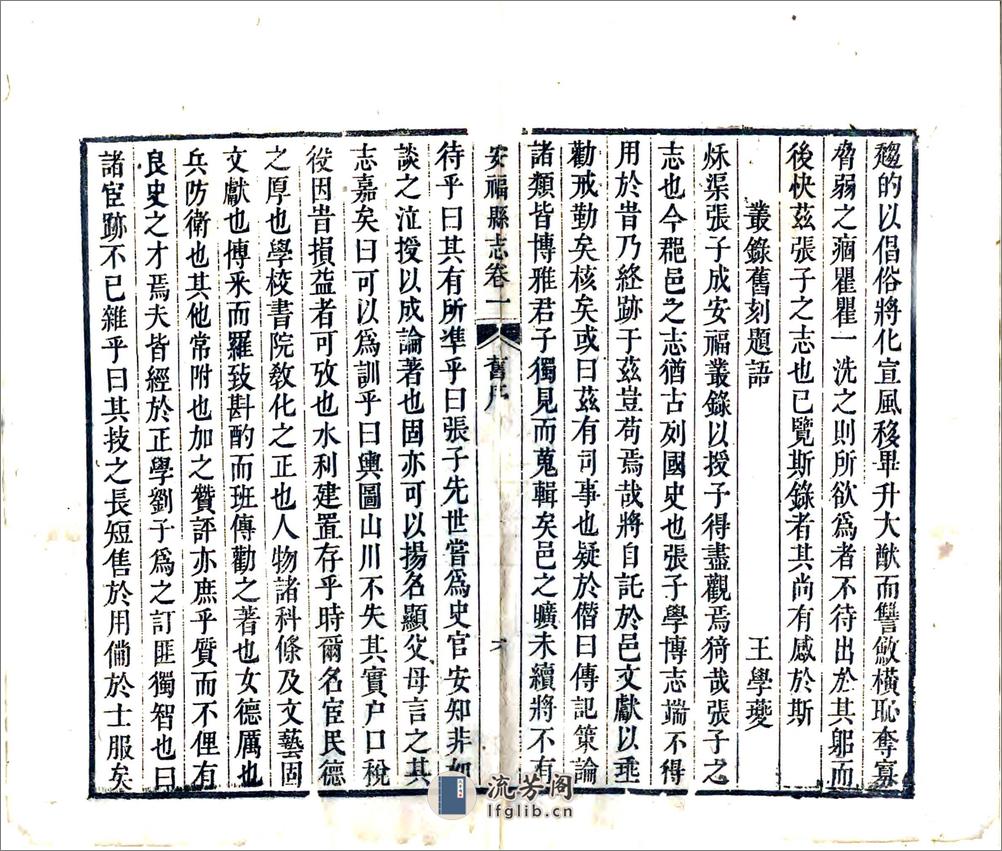 趨的以倡俗將化宣風移畢升大猷而讐斂橫恥奪寡
脅弱之痼瞿瞿一洗之則所欲爲者不待出於其躬而
後快茲張子之志也已覽斯錄者其尚有感於斯
叢錄舊刻題語 王學夔
秌渠張子成安福叢錄以授予得盡觀焉猗哉張子之
志也今郡邑之志猶古列國史也張子學博志端不得
用於昔乃終跡于茲豈苟焉哉將自託於邑文獻以垂
勸戒勤矣核矣或曰茲有司事也疑於僭曰傳記策論
諸類皆博雅君子獨見而蒐輯矣邑之曠未續將不有
安福縣志卷一 舊序 六
待乎曰其有所準乎曰張子先世嘗爲史官安知非如
談之泣授以成論著也固亦可以揚名顯父母言之其
志嘉矣曰可以爲訓乎曰輿圖山川不失其實户口稅
役因昔損益者可攷也水利建置存乎時爾名宦民德
之厚也學校書院敎化之正也人物諸科條及文藝固
文獻也博釆而羅致斟酌而班傳勸之著也女德厲也
兵防衛也其他常附也加之贊評亦庶乎質而不俚有
良史之才焉夫皆經於正學劉子爲之訂匪獨智也曰
諸宦跡不已雜乎曰其技之長短售於用偹於士服矣
流芳阁
lfglib.cn